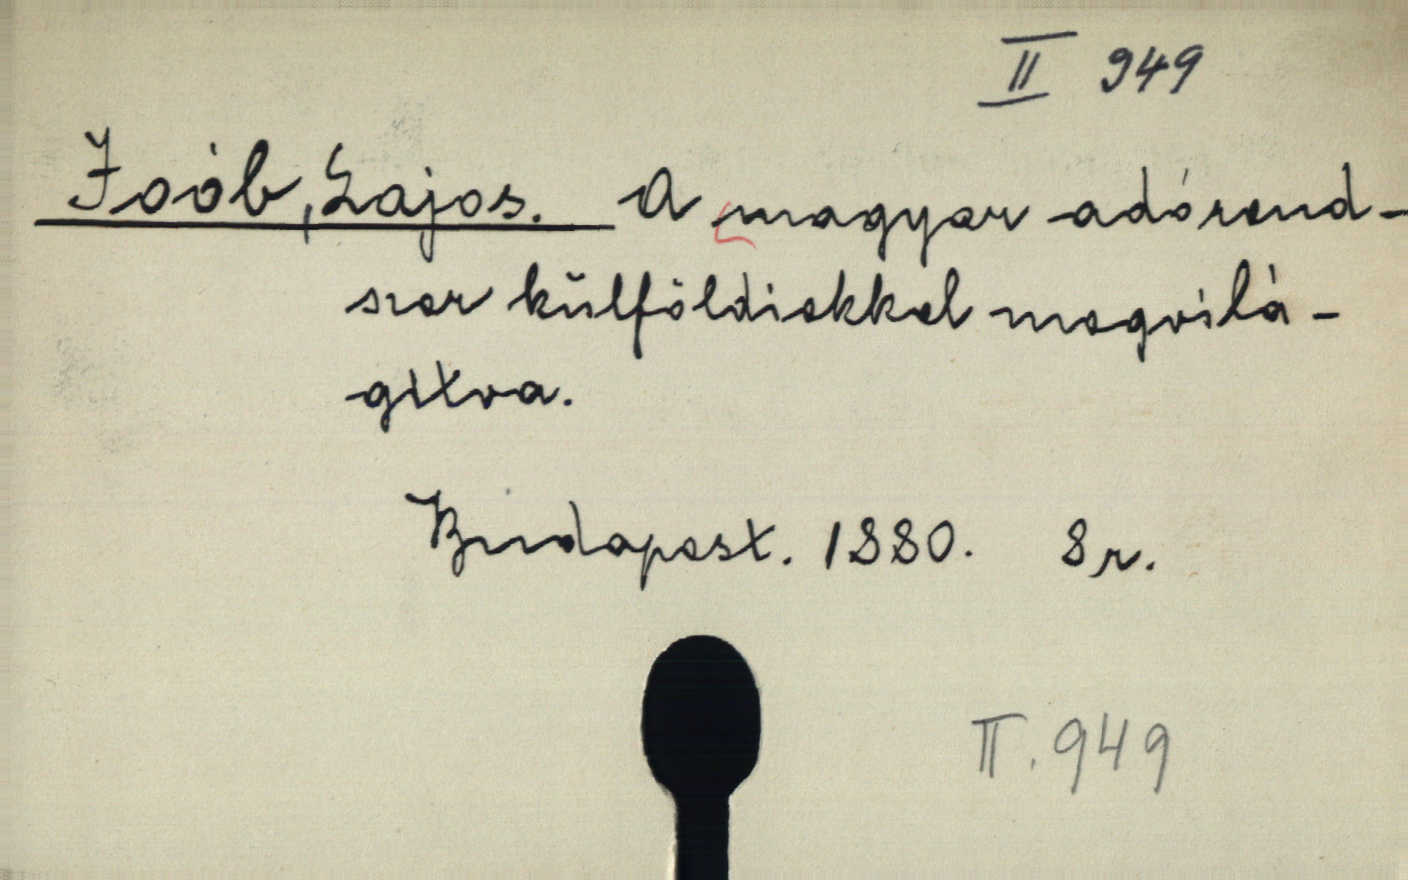 II 949
Joób, Lajos. A magyar adórend-
szer külföldiekkel megvilá-
gitva.
Budapest. 1880. 8r.
II. 949